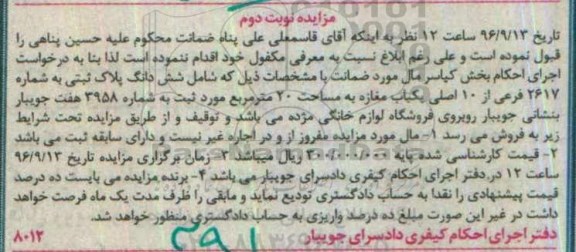 مزایده نوبت دوم
تاریخ ۹۶/۹/۱۳ ساعت ۱۲ نظر به اینکه آقای قاسمعلی علی پناه ضمانت محکوم علیه حسین پناهی را
قبول نموده است و علی رغم ابلاغ نسبت به معرفی مکفول خود اقدام ننموده است لذا بنا به درخواست
اجرای احکام بخش کیاسر مال مورد ضمانت با مشخصات ذیل که شامل شش دانگ پلاک ثبتی به شماره
۲۶۱۷ فرعی از ۱۰ اصلی یکباب مغازه به مساحت ۲۰ مترمربع مورد ثبت به شماره ۳۹۵۸ هفت جویبار
بنشانی جویبار روبروی فروشگاه لوازم خانگی مژده می باشد و توقیف و از طریق مزایده تحت شرایط
زیر به فروش می رسد ۱- مال مورد مزایده مفروز از و در اجاره غیر نیست و دارای سابقه ثبت می باشد
۲- قیمت کارشناسی شده پایه ریال میباشد ۳- زمان برگزاری مزایده تاریخ ۹۶/۹/۱۳
ساعت ۱۲ در دفتر اجرای احکام کیفری دادسرای جویبار می باشد ۴- برنده مزایده می بایست ده درصد
قیمت پیشنهادی را نقدا به حساب دادگستری تودیع نماید و مابقی را ظرف مدت یک ماه فرصت خواهد
داشت در غیر این صورت مبلغ ده درصد واریزی به حساب دادگستری منظور خواهد شد.
دفتر اجرای احکام کیفری دادسرای جویبار ۸۰۱۲
۲۹۱